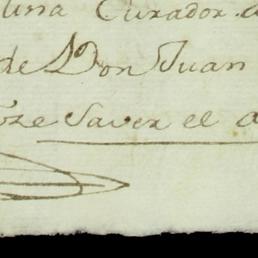 una Curador
de Don Juan
Saver el a